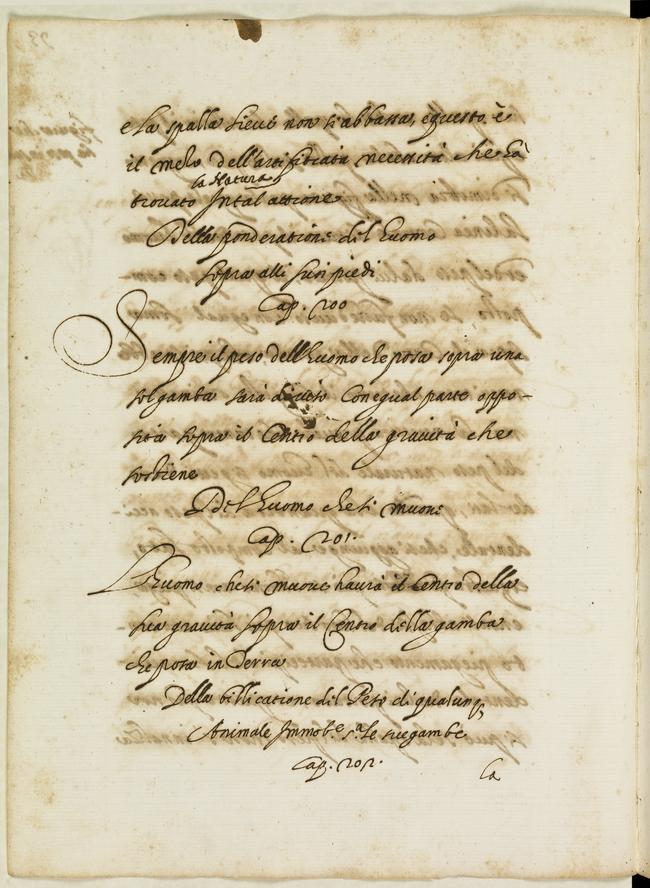 e La spalla lieue non s'abbassa, e questo è
il melo dell'artifitiata necessità che hà
la Natura
trouato In tal attione
Della ponderatione del huomo
sopra alli suoi piedi
Cap. 200
Sempre il peso dell'huomo che posa sopra una
sol gamba sarà diuiso Con egual parte oppo-
sita sopra il Centro della grauità che
sostiene
Del huomo che si muoue
Cap. 201.
L'huomo che si muoue haurà il Centro della
sua grauità sopra il Centro della gamba
che posa in Terra
Della billicatione del Peso di qualunq3
Animale Immob.e s.a le sue gambe
Cap. 202.
La